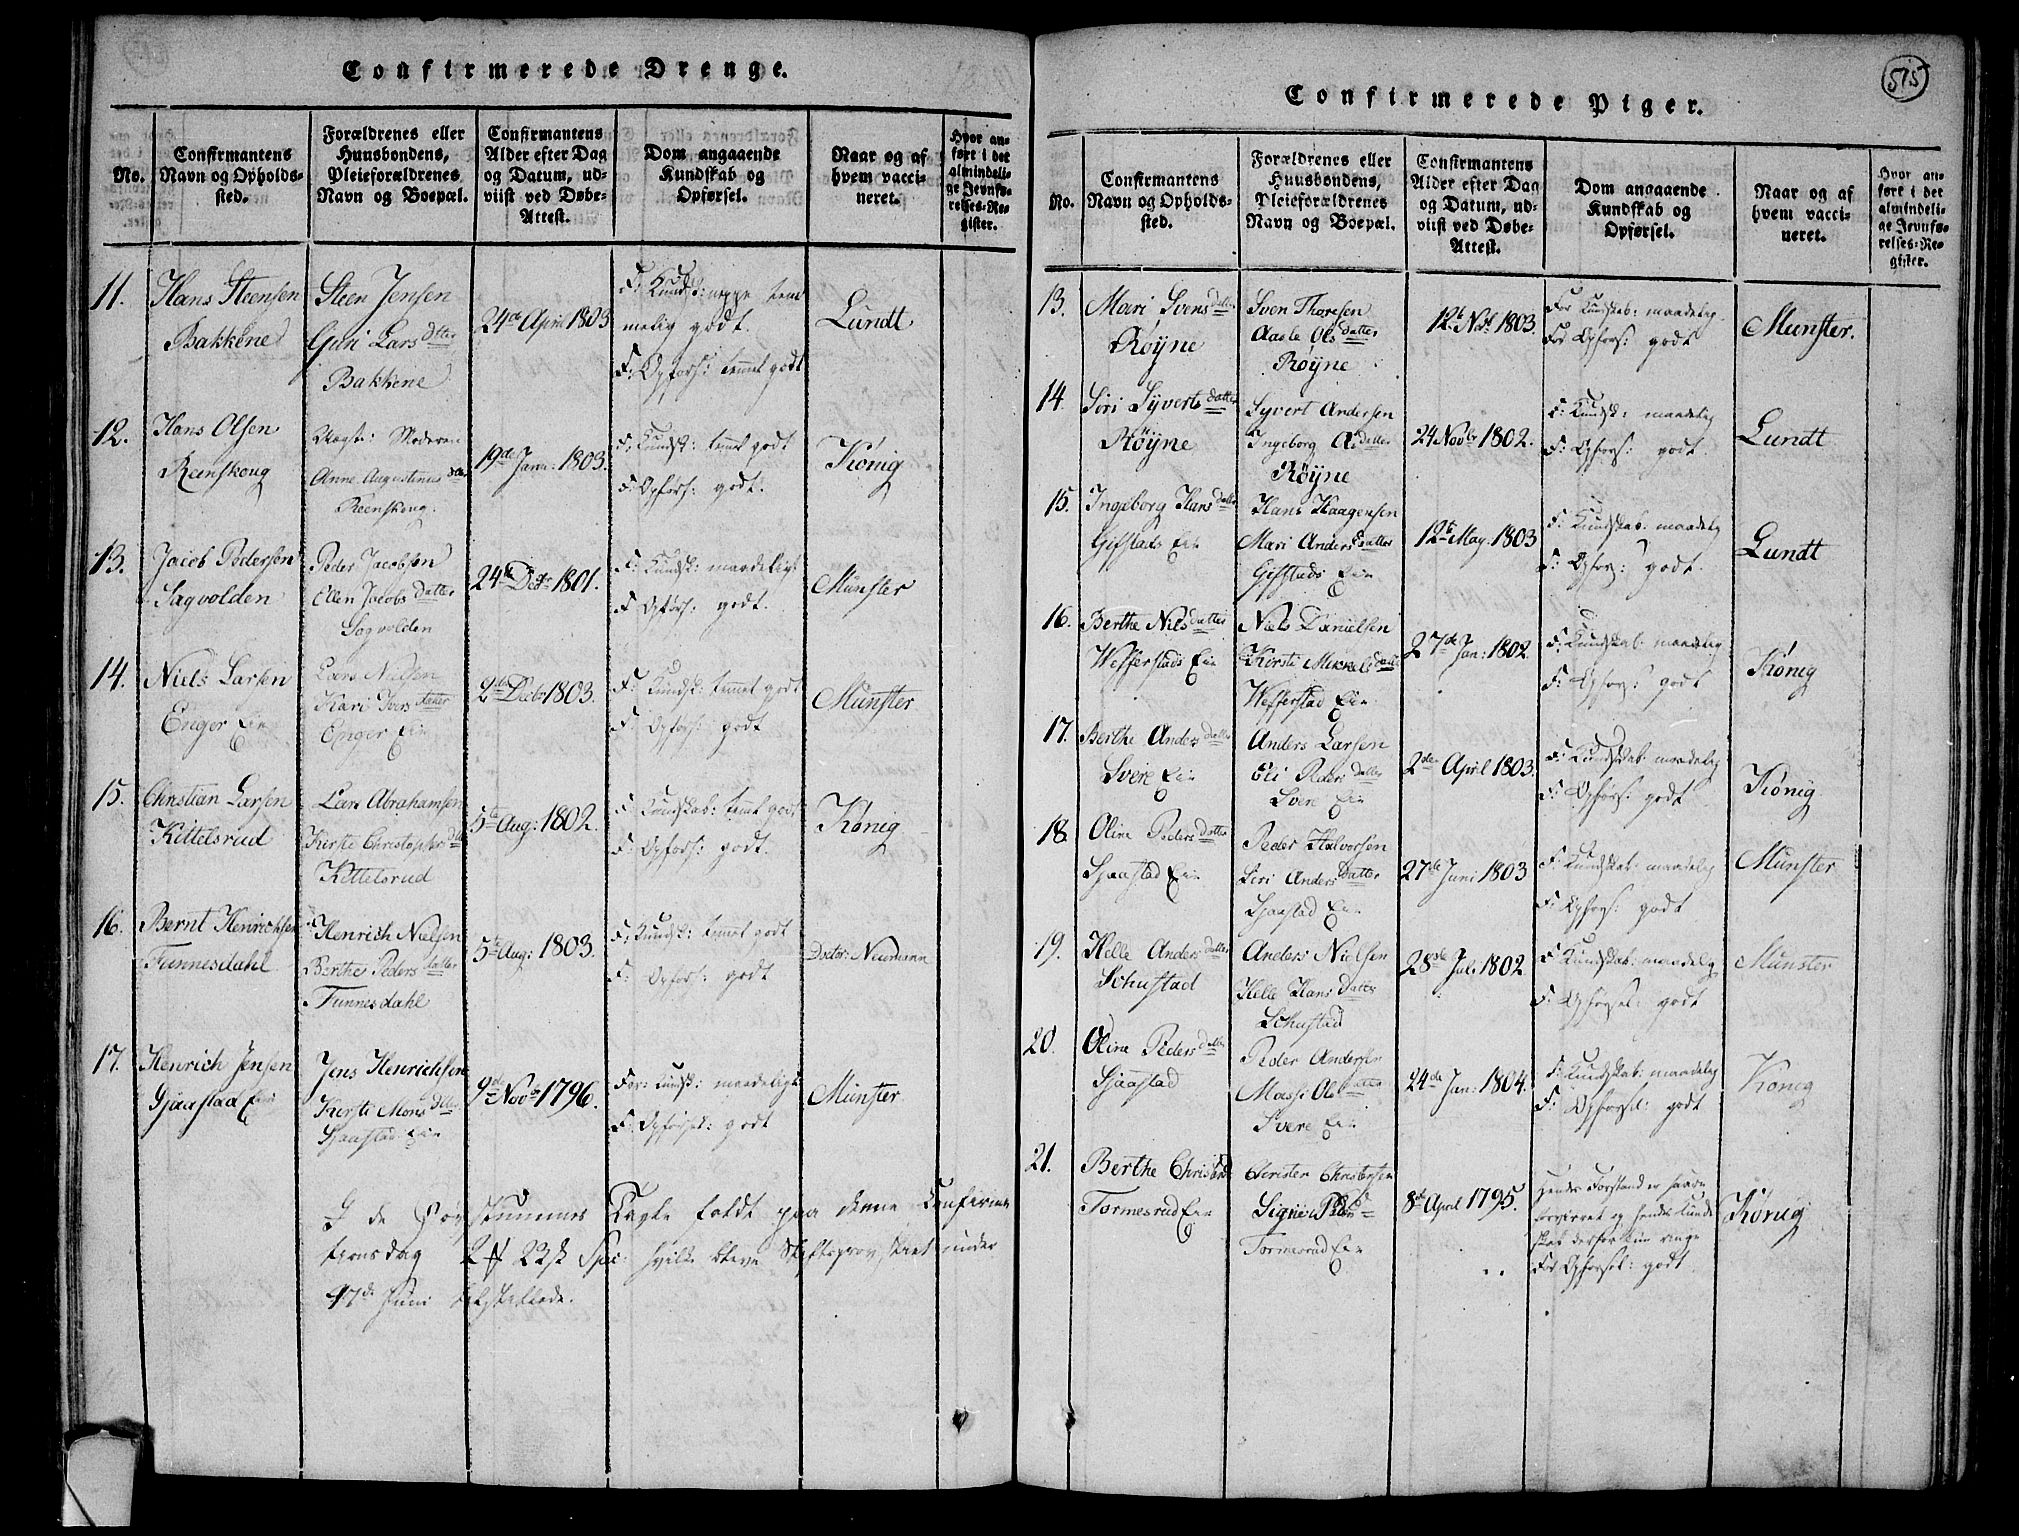 Confirmerede Drenge.
No.
Confirmantens
Navn og Opholds-
sted.
Forældrenes eller
Huusbondens,
Pleieforældrenes
Navn og Boepæl.
Confirmantens
Alder efter Dag
og Datum, ud-
viist ved Døbe-
Attest.
Dom angaaende
Kundskab og
Opførsel.
Naar og af
hvem vacci-
neret.
Hvor an-
ført i det
almindeli-
ge Jevnfø-
relses-Re-
gister.
11.
Hans Steensen
Bakkene
Steen Jensen
Guri Lars datter
Bakkene
24de April 1803
F: Kundsk: neppe tem
melig godt.
F: Opførs: temmet godt
Lundt
12.
Hans Olsen
Reenskoug
Uægte: Moderen
Anne Augustinus dtr
Reenskoug.
19de Janv: 1803.
F: Kundsk: temmet godt
F: Opførs: godt.
König
13.
Jacob Pedersen
Sagvolden
Peder Jacobsen
Ellen Jacobs datter
Sagvolden
24de Decbr 1801.
F: Kundsk: maadeligt
F: Opførs: godt.
Münster
14.
Niels Larsen
Enger Eie
Lars Nielsen
Kari Ivers datter
Enger Eie
2de Decbr 1803.
F: Kundsk: temmet godt
F: Opførs: godt
Münster
15.
Christian Larsen
Kittelsrud
Lars Abrahamsen
Kirste Christopher dtr
Kittelsrud
5te Aug: 1802.
F: Kundskab: temmet godt
F: Opførs: godt.
König
16.
Bernt Henrichsen
Tunnesdahl
Henrich Nielsen
Berthe Peders datter
Tunnesdahl
5te Aug: 1803.
F: Kundsk: temmet godt
F: Opførs: godt
Doctor Neumann
17.
Henrich Jensen
Sjaastad Eie
Jens Henrichsen
Kirsti Mons dtr
Sjaastad Eie
9de Novb 1796.
For: Kundsk: maadeligt
F: Opførsel: godt
Münster
I de Døvstummes Tavle faldt paa denne Confirma
tionsdag 2 23 sk Spec: hvilke bleve Stiftsprovstiet under
17de Juni tilstillede.
Confirmerede Piger.
515
No.
Confirmantens
Navn og Opholds-
sted.
Forældrenes eller
Huusbondens,
Pleieforældrenes
Navn og Boepæl.
Confirmantens
Alder efter Dag
og Datum, ud-
viist ved Døbe-
Attest.
Dom angaaende
Kundskab og
Opførsel.
Naar og af
hvem vacci-
neret.
Hvor an-
ført i det
almindeli-
ge Jevnfø-
relses-Re-
gister.
13.
Mari Svens datter
Røyne
Sven Thoresen
Aasle Ols datter
Røyne
12te Nobr 1803.
For Kundskab: maadelig
For Opførs: godt
Munster.
14.
Siri Syverts datter
Røyne
Syvert Andersen
Ingeborg A: datter
Røyne
24 Novbr 1802.
F: Kundsk: maadelig
F: Opførs: godt.
Lundt
15.
Ingeborg Hans datter
Gifstads Eie
Hans Haagensen
Mari Anders datter
Gifstads Eie
12te May. 1803
F: Kundskab: maadelig
F: Opførs: godt.
Lundt
16.
Berthe Nils datter
Wefferstads Eie
Niels Danielsen
Kirsti Mikkels datter
Wefferstad Eie
27de Jan: 1802.
F: Kundskab: maadelig
F: Opførs: godt
König
17.
Berthe Anders datter
Svere Eie
Anders Larsen
Eli Peders datter
Svere Eie
2den April 1803.
F: Kundskab maadelig
F: Opførs: godt
König
18
Oline Peders datter
Sjaastad Eie
Peder Halvorsen
Siri Anders datter
Sjaastad Eie
27de Juni 1803
F: Kundskab: maadelig
F: Opførs: godt
Münster
19.
Helle Anders datter
Schustad
Anders Nielsen
Helle Hans datter
Schustad
28de Juli 1802
F: Kundskab: maadelig
F: Opførsel: godt
Münster
20.
Oline Peders datter
Sjaastad
Peder Andersen
Massi Ols datter
Svere Eie
24de Jan: 1804.
F: Kundskab: maadelig
F: Opførsel: godt
König
21.
Berthe Christ
Tormesrud Eie
Christen Christensen
Signe Peders D
Tormesrud Eie
8de April 1795.
Hendes Forstand er
forvirret og hendes Kund
skab derfor kun ringe
For Opførsel: godt
König